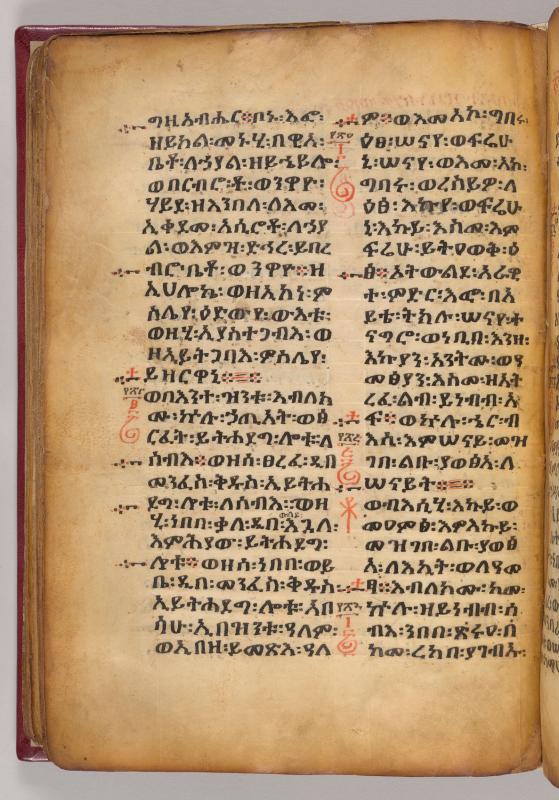 ግዚአብሔር፡ቦኑ፡እፎ፡
ዘይክል፡መኑሂ፡በዊአ፡
ቤቶ፡ለኃያል፡ዘይኄይሎ፡
ወበርብሮ፡ቶ፡ወንዋዮ፡
ሃይደ፡ዘእንበለ፡ለእመ፡
ኢቀደመ፡አሲሮቶ፡ለኃያ
ል፡ወእምዝ፡ድኅረ፡ይበረ
ብሮ፡ቤቶ፡ወንዋዮ፨ዘ
ኢሀሎኬ፡ወዘኢኮነ፡ም
ስሌየ፡ዕድውየ፡ውእቱ፡
ወዘሂ፡ኢያስተጋብእ፡ወ
ዘኢይትጋባእ፡ምስሌየ፡
ይዘርወኒ፨
ወበእንተ፡ዝንቱ፡እብለክ
ሙ፡ኵሉ፡ኃጢአት፡ወፅ
ርፈት፡ይትሐደግ፡ሎቱ፡ለ
ሰብእ፨ወዘሰ፡ፀረፈ፡ዲበ
መንፈስ፡ቅዱስ፡ኢይትሐ
ደግ፡ሎቱ፡ለሰብእ፨ወዘ
ሂ፡ነበበ፡ቃለ፡ዲበ፡እጓለ፡
እምሕያው፡ይትሐደግ፡
ሎቱ፨ወዘሰ፡ነበበ፡ወይ
ቤ፡ዲበ፡መንፈስ፡ቅዱስ፡
ኢይትሐደግ፡ሎቱ፡እበ
ሳሂ፡ኢበዝንቱ፡ዓለም፡
ወኢበዘ፡ይመጽእ፡ዓለ
ም፨ወእመአኮ፡ግበሩ
ዕፀ፡ሠናየ፡ወፍሬሁ
ኒ፡ሠናየ፡ወእመ፡አኮ፡
ግበሩ፡ወረስይዎ፡ለ
ዕፅ፡እኩየ፡ወፍሬሁ
ኒ፡እኩይ፡እስመ፡እም
ፍሬሁ፡ይትዐወቅ፡ዕ
ፅ፨ኦትውልደ፡አራዊ
ተ፡ምድር፡እፎ፡በእ
ይቴ፡ትክሉ፡ሠናየ፡ት
ናግሮ፡ወነቢበ፡እንዘ፡
እኩያን፡አንትሙ፡ወዓ
መፅያን፡እስመ፡ዘእት
ረፈ፡ልብ፡ይነብብ፡አ
ፍ፨ወኵሉ፡ኄር፡ብ
እሲ፡እምሠናይ፡መዝ
ገበ፡ልቡ፡ያወፅእ፡ለ
ሠናይት፨
ወብእሲሂ፡እኩይ፡ወ
መዐምፅ፡እምእኩይ፡
መዝገበ፡ልቡ፡ያወፅ
እ፡ለእኪት፡ወለዓመ
ፃ፨እብለክሙ፡ከመ፡
ኵሉ፡ዘይነብብ፡ሰ
ብእ፡ነበበ፡ጽሩዐ፡በ
ከመ፡ረከበ፡ያገብኡ፡